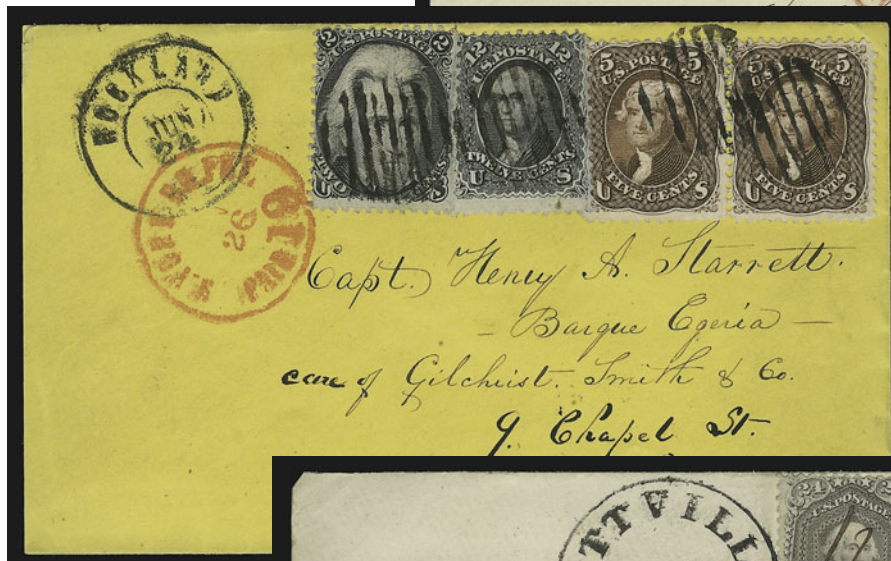 ROCKLAND
JUN
24
N. YORK BR. PKT.
26
PAID 19
2 U.S. POSTAGE 2
TWO CENTS
U S
12 12
U.S. POSTAGE
TWELVE CENTS
U S
5 5
U.S. POSTAGE
FIVE CENTS
U S
5 5
U.S. POSTAGE
FIVE CENTS
U S
Capt. Henry A. Starrett.
- Barque Egeria -
care of Gilchrist. Smith & Co.
9. Chapel St.
TTVILL
24
U.S. POSTAGE